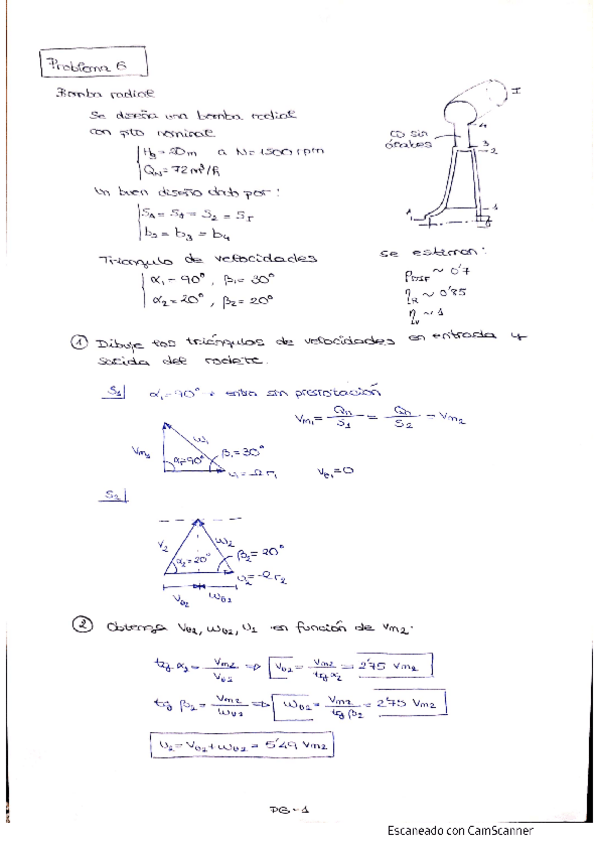 Problema 6
Bomba radial
Se diseña una bomba radial
con pto nominal
HB = 50m a N = 1500 rpm
QN = 72 m³/h
Un buen diseño dado por:
S1 = S2 = Sr
b2 = b3 = b4
Triángulo de velocidades
α1 = 90°, β1 = 30°
α2 = 20°, β2 = 20°
CD sin
álabes
I
4
3
2
1
1
se estiman:
~ 0'7
ηH ~ 0'85
ηv ~ 1
① Dibuje los triángulos de velocidades en entrada y
salida del rodete.
S1 α1 = 90° → entra sin prerrotación
Vm1 = Qn/S1 = Qn/S2 = Vm2
Vm1 w1 α1=90° β1=30° u1 = Ω r1 Vθ1 = 0
S2
V2 w2 α2=20° β2=20° u2 = Ω r2
Vθ2 wθ2
② Obtenga Vθ2, wθ2, u2 en función de Vm2.
tg α2 = Vm2/Vθ2 => Vθ2 = Vm2/tg α2 = 2'75 Vm2
tg β2 = Vm2/wθ2 => wθ2 = Vm2/tg β2 = 2'75 Vm2
u2 = Vθ2 + wθ2 = 5'49 Vm2
P6-1
Escaneado con CamScanner